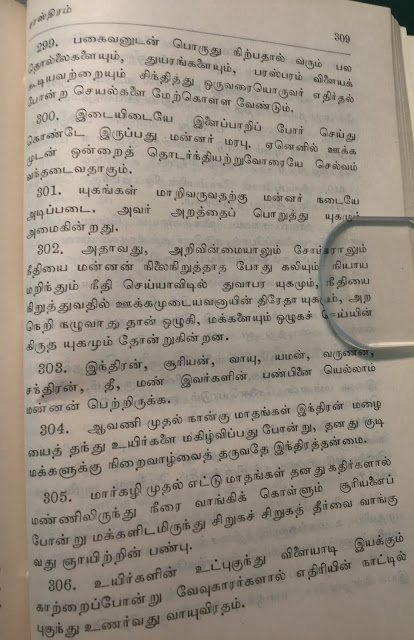 சாஸ்திரம்
309
299. பகைவனுடன் பொருது நிற்பதால் வரும் பல
தொல்லைகளையும், துயரங்களையும், பரஸ்பரம் விளையக்
கூடியவற்றையும் சிந்தித்து ஒருவரையொருவர் எதிர்தல்
போன்ற செயல்களை மேற்கொள்ள வேண்டும்.
300. இடையிடையே இளைப்பாறிப் போர் செய்து
கொண்டே இருப்பது மன்னர் மரபு. ஏனெனில் ஊக்க
முடன் ஒன்றைத் தொடர்ந்தியற்றுவோரையே செல்வம்
வந்தடைவதாகும்.
301. யுகங்கள் மாறிவருவதற்கு மன்னர் நடையே
அடிப்படை. அவர் அறத்தைப் பொறுத்து யுகமும்
அமைகின்றது.
302. அதாவது, அறிவின்மையாலும் சோம்பராலும்
நீதியை மன்னன் நிலைநிறுத்தாத போது கலியும், நியாய
மறிந்தும் நீதி செய்யாவிடில் துவாபர யுகமும், நீதியை
நிறுத்துவதில் ஊக்கமுடையவனாயின் திரேதா யுகமும், அற
நெறி நழுவாது தான் ஒழுகி, மக்களையும் ஒழுகச் செய்யின்
கிருத யுகமும் தோன்றுகின்றன.
303. இந்திரன், சூரியன், வாயு, யமன், வருணன்,
சந்திரன், தீ, மண் இவர்களின் பண்பினை யெல்லாம்
மன்னன் பெற்றிருக்க.
304. ஆவணி முதல் நான்கு மாதங்கள் இந்திரன் மழை
யைத் தந்து உயிர்களை மகிழ்விப்பது போன்று, தனது குடி
மக்களுக்கு நிறைவாழ்வைத் தருவதே இந்திரத்தன்மை.
305. மார்கழி முதல் எட்டு மாதங்கள் தனது கதிர்களால்
மண்ணிலிருந்து நீரை வாங்கிக் கொள்ளும் சூரியனைப்
போன்று மக்களிடமிருந்து சிறுகச் சிறுகத் தீர்வை வாங்கு
வது ஞாயிற்றின் பண்பு.
306. உயிர்களின் உட்புகுந்து விளையாடி இயக்கும்
காற்றைப்போன்று வேவுகாரர்களால் எதிரியின் நாட்டில்
புகுந்து உணர்வது வாயுவிரதம்.